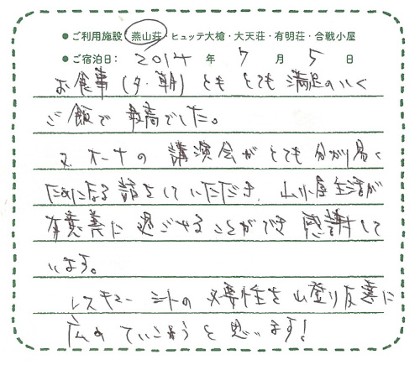 ●ご利用施設 燕山荘・ヒュッテ大槍・大天荘・有明荘・合戦小屋
●ご宿泊日: 2014 年 7 月 5 日
お食事(夕・朝)とも とても 満足のいく
ご飯で 最高でした。
又 オーナの 講演会が とても 分かり易く
ためになる 話をして いただき、山小屋生活が
有意義に 過ごせることができ 感謝して
います。
レスキュー シートの 必要性を 山登り友達に
広め ていこうと 思います!